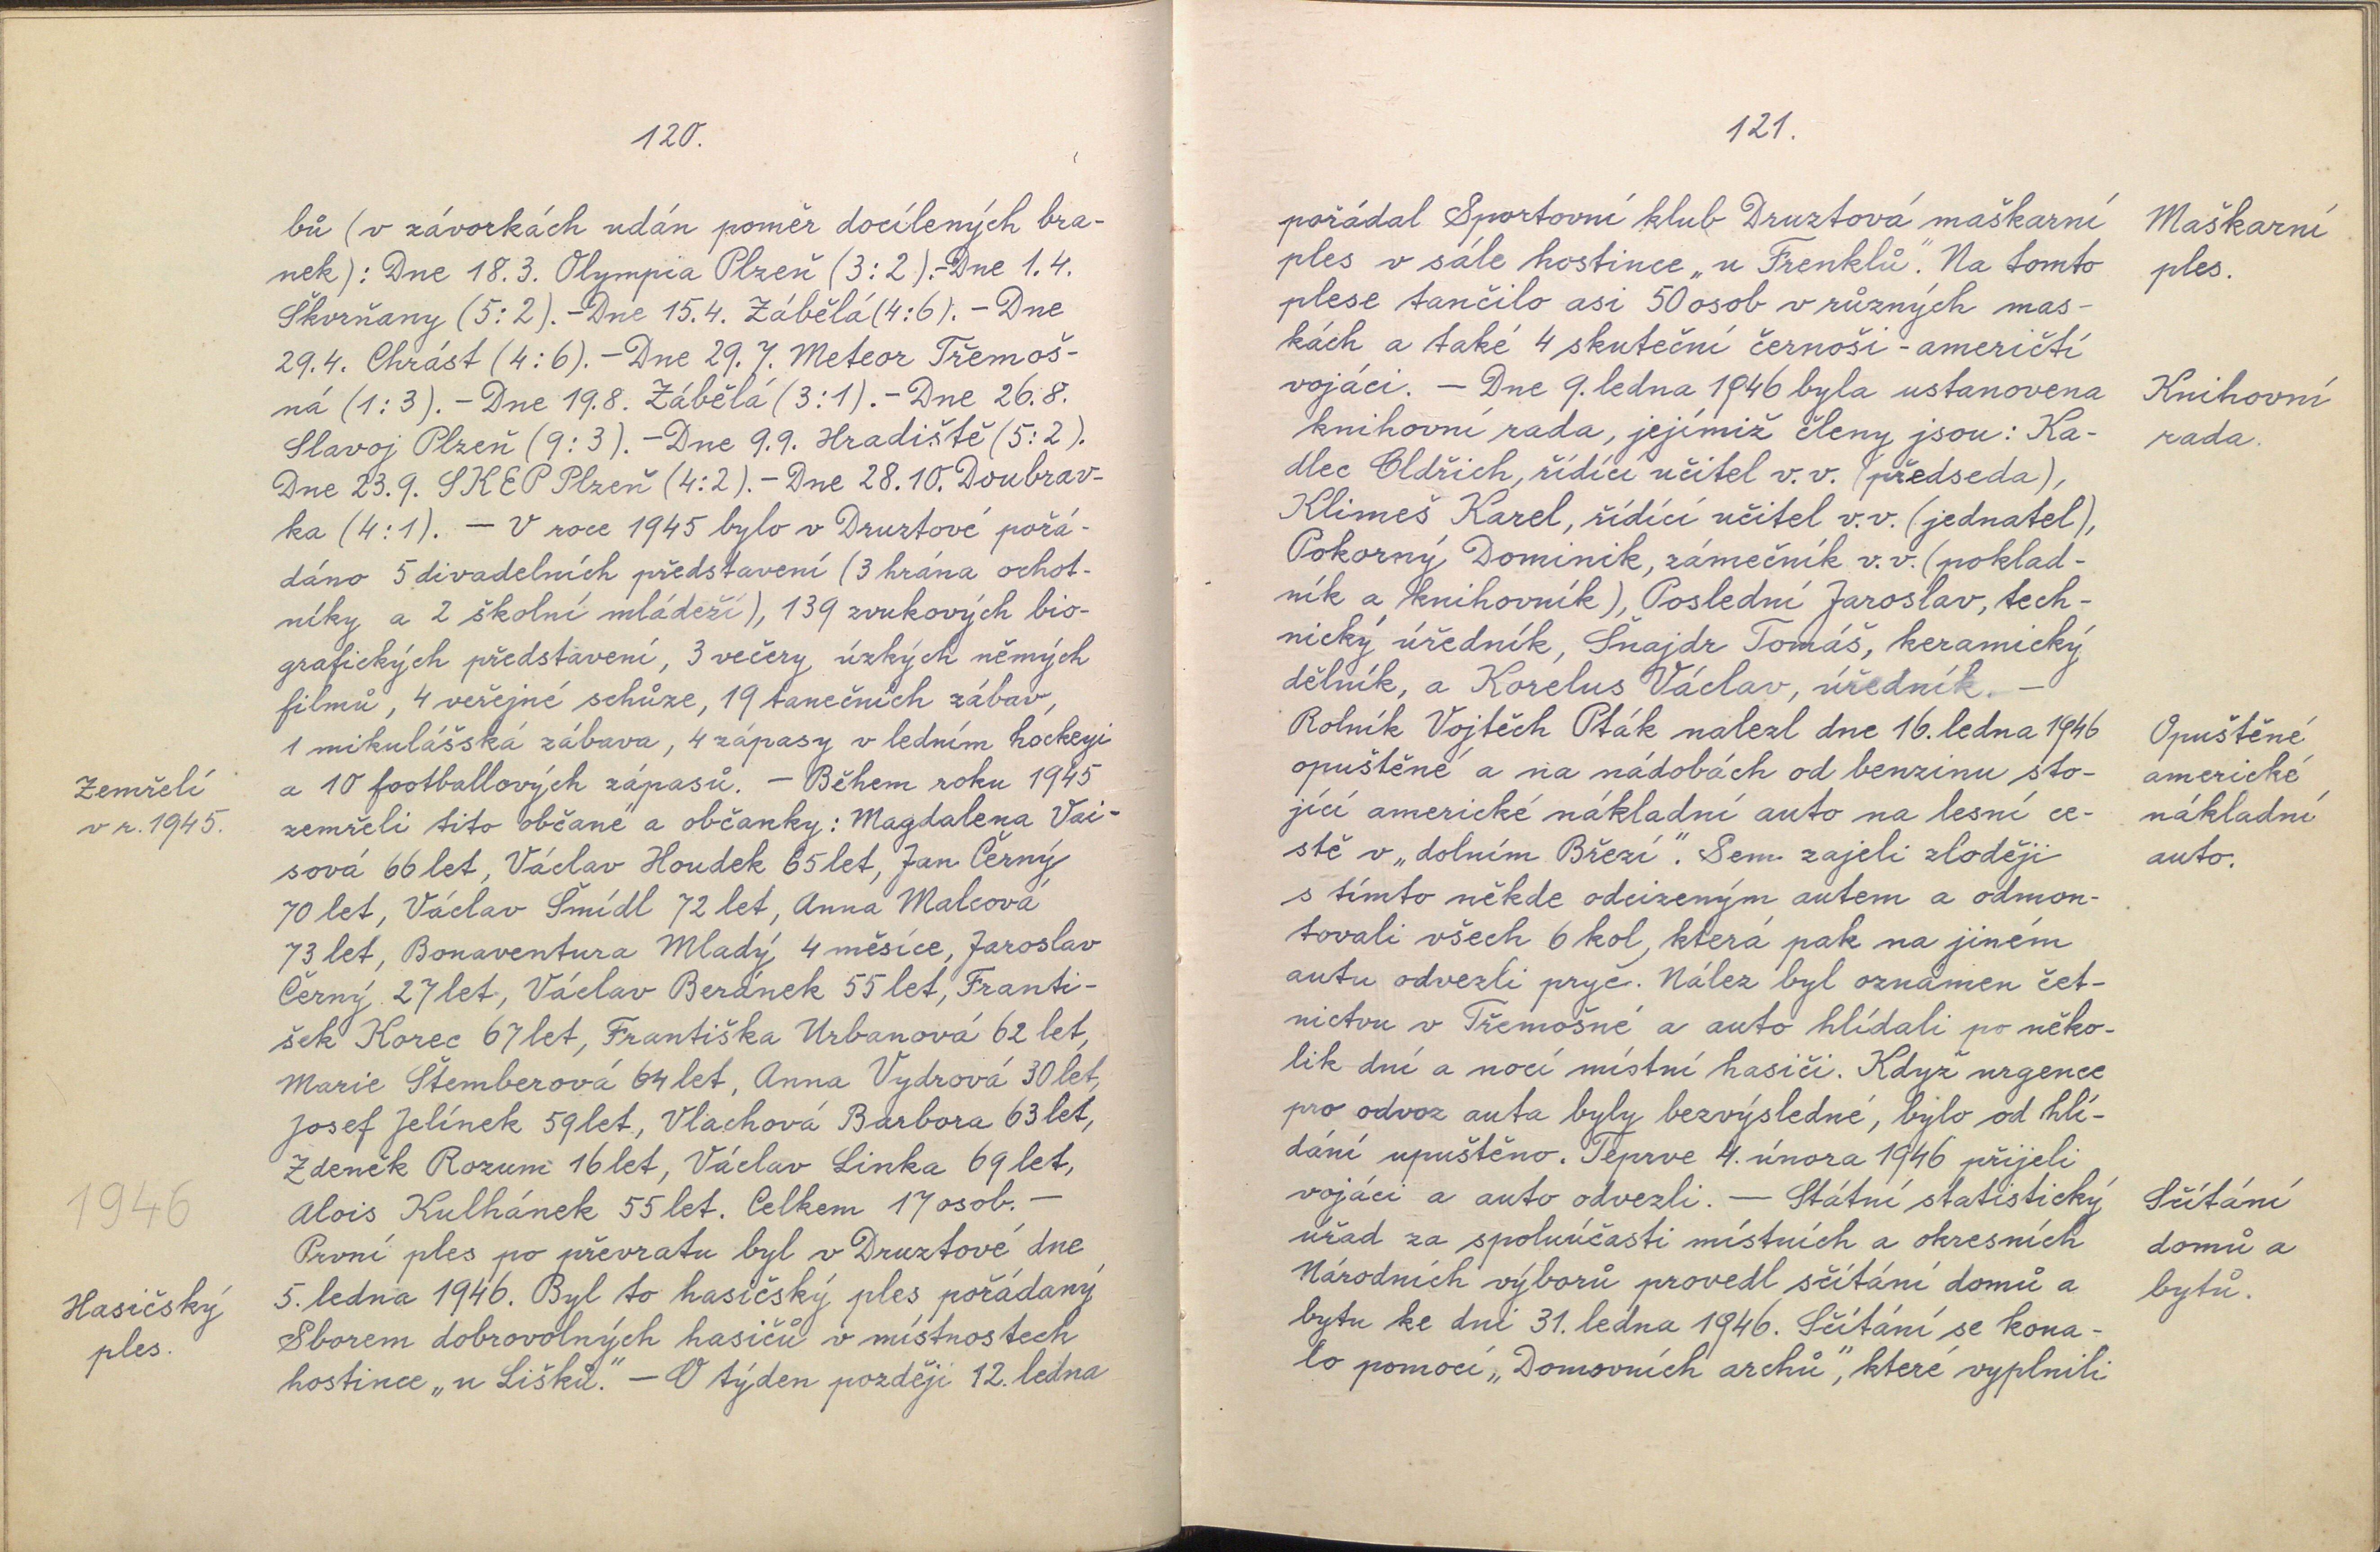 120.
bů (v závorkách udán poměr docílených bra-
nek): Dne 18.3. Olympia Plzeň (3:2).-Dne 1.4.
Škvrňany (5:2).-Dne 15.4. Zábělá (4:6). - Dne
29.4. Chrást (4:6). - Dne 29.7. Meteor Třemoš-
ná (1:3). - Dne 19.8. Zábělá (3:1). - Dne 26.8.
Slavoj Plzeň (9:3). - Dne 9.9. Hradiště (5:2).
Dne 23.9. SKEP Plzeň (4:2). - Dne 28.10. Doubrav-
ka (4:1). — V roce 1945 bylo v Druztové pořá-
dáno 5 divadelních představení (3 hrána ochot-
níky a 2 školní mládeží), 139 zvukových bio-
grafických představení, 3 večery úzkých němých
filmů, 4 veřejné schůze, 19 tanečních zábav,
1 mikulášská zábava, 4 zápasy v ledním hockeyi
Zemřelí
v r. 1945.
a 10 footballových zápasů. — Během roku 1945
zemřeli tito občané a občanky: Magdalena Vai-
sová 66 let, Václav Houdek 65 let, Jan Černý
70 let, Václav Šmídl 72 let, Anna Malcová
73 let, Bonaventura Mladý 4 měsíce, Jaroslav
Černý 27 let, Václav Beránek 55 let, Franti-
šek Korec 67 let, Františka Urbanová 62 let,
Marie Štemberová 64 let, Anna Vydrová 30 let,
Josef Jelínek 59 let, Vlachová Barbora 63 let,
Zdeněk Rozum 16 let, Václav Linka 69 let,
1946
Alois Kulhánek 55 let. Celkem 17 osob. —
První ples po převratu byl v Druztové dne
Hasičský
ples.
5. ledna 1946. Byl to hasičský ples pořádaný
Sborem dobrovolných hasičů v místnostech
hostince „u Lišků.” — O týden později 12. ledna
121.
pořádal Sportovní klub Druztová maškarní
Maškarní
ples.
ples v sále hostince „u Frenklů”. Na tomto
plese tančilo asi 50 osob v různých mas-
kách a také 4 skuteční černoši - američtí
vojáci. — Dne 9. ledna 1946 byla ustanovena
Knihovní
rada.
knihovní rada, jejímiž členy jsou: Ka-
dlec Oldřich, řídící učitel v.v. (předseda),
Klimeš Karel, řídící učitel v.v. (jednatel),
Pokorný Dominik, zámečník v.v. (poklad-
ník a knihovník), Poslední Jaroslav, tech-
nický úředník, Šnajdr Tomáš, keramický
dělník, a Korelus Václav, úředník. —
Rolník Vojtěch Pták nalezl dne 16. ledna 1946
Opuštěné
americké
nákladní
auto.
opuštěné a na nádobách od benzinu sto-
jící americké nákladní auto na lesní ce-
stě v „dolním Březí”. Sem zajeli zloději
s tímto někde odcizeným autem a odmon-
tovali všech 6 kol, která pak na jiném
autu odvezli pryč. Nález byl oznámen čet-
nictvu v Třemošné a auto hlídali po něko-
lik dní a nocí místní hasiči. Když urgence
pro odvoz auta byly bezvýsledné, bylo od hlí-
dání upuštěno. Teprve 4. února 1946 přijeli
vojáci a auto odvezli. — Státní statistický
Sčítání
domů a
bytů.
úřad za spoluúčasti místních a okresních
Národních výborů provedl sčítání domů a
bytu ke dni 31. ledna 1946. Sčítání se kona-
lo pomocí „Domovních archů”, které vyplnili